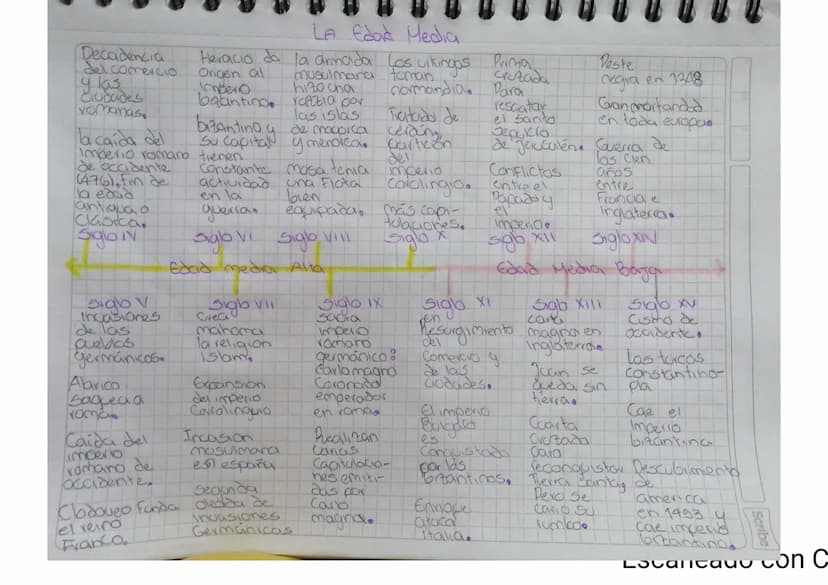 La Edad Media
Decadencia
del comercio
y las
ciudades
romanas.
la caída del
imperio romano
de occidente
(476). fin de
la edad
antigua o
clásica.
Siglo IV
Heracio da
origen al
imperio
bizantino.
bizantino y
su capital
tienen
constante
actividad
en la
guerra.
Siglo VI
la armada
musulmana
hizo una
razzia por
las islas
de mallorca
y menorca.
mosa tenia
una flota
bien
equipada.
Siglo VIII
Los vikingos
toman
normandia.
Tratado de
partición
del
imperio
más capi-
tulaciones.
Siglo X
Prima
cruzada
Para
rescatar
el santo
de Jerusalén.
Conflictos
entre el
Papado y
el
imperio.
Siglo XII
Peste
negra en 1348
Gran mortandad
en toda europa.
Guerra de
los cien
años
entre
Francia e
inglaterra.
Siglo XIV
Edad media Alta
Edad Media Baja
Siglo V
Invasiones
de los
pueblos
germánicos.
Alarico
saquea a
roma.
Caída del
imperio
romano de
occidente.
Clodoveo funda
el reino
Franco.
Siglo VII
Crea
mahoma
la religion
islam.
Expansion
del imperio
Carolinguio
Invasion
musulmana
en españa
segunda
oleada de
invasiones
Germánicas
Siglo IX
imperio
romano
germánico:
carlomagno
Coronado
emperador
en roma.
Realizan
varias
Capitulacio-
nes emiti-
das por
Carlo
magno.
Siglo XI
en
Resurgimiento
del
Comercio y
de las
ciudades.
El imperio
es
Conquistado
por los
bizantinos.
Enrique
ataca
italia.
Siglo XIII
carta
magna en
inglaterra.
Juan se
queda sin
tierra.
Cuarta
cruzada
para
reconquistar
Tierra Santa,
Pero se
varió su
rumbo.
Siglo XV
Cismo de
occidente.
Los turcos
constantino-
pla
Cae el
imperio
bizantina
Descubrimento
de
america
en 1493 y
cae imperio
bizantino.
Scribe
Escaneado con C